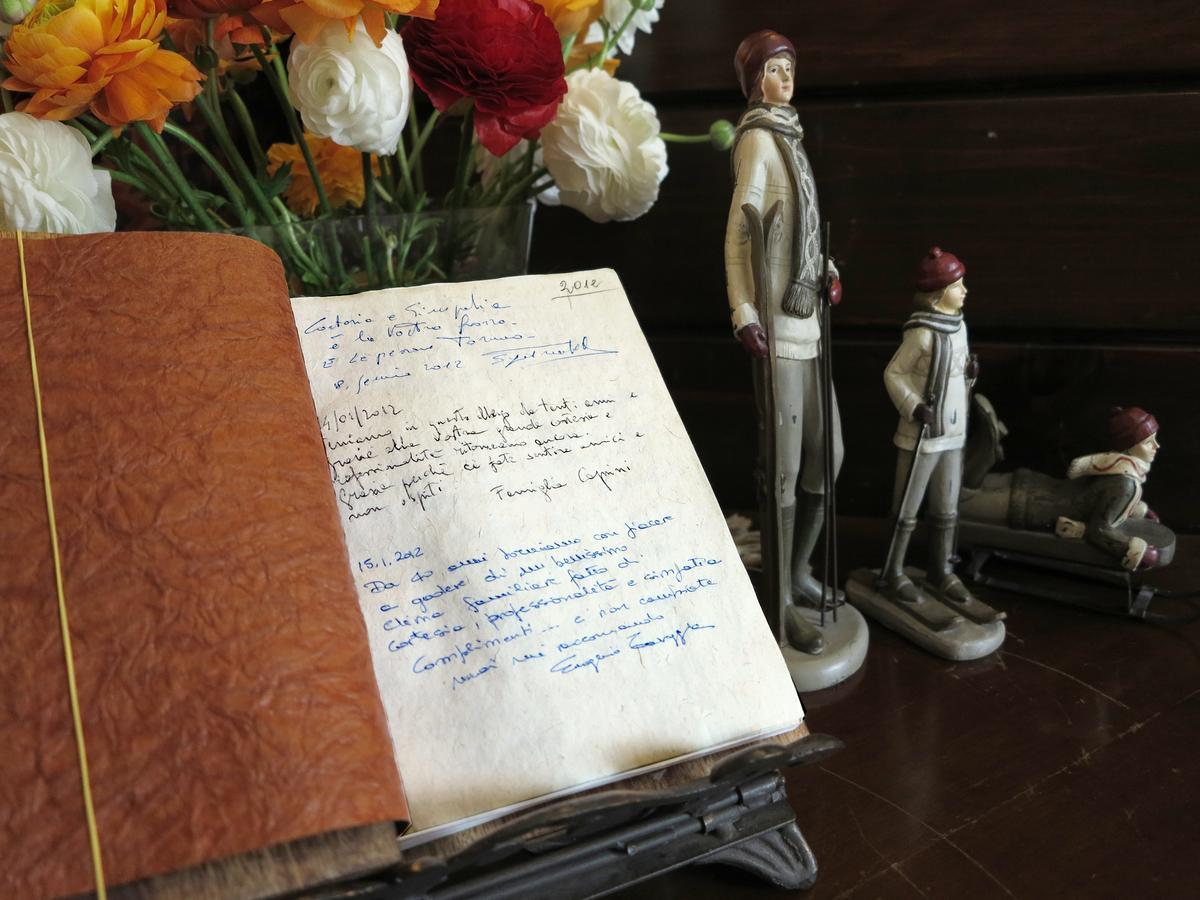 2012
Cortesia e Simpatia
è la Vostra forza.
E la penna
8. Gennaio 2012
4/01/2012
Veniamo in questo albergo da tanti anni e
grazie alla Vostra grande cortesia e
professionalità ritorneremo ancora.
Grazie perché ci fate sentire amici e
non ospiti Famiglia Caprini
15.1.2012
Da 40 anni torniamo con piacere
a godere di un bellissimo
clima familiare fatto di
cortesia, professionalità e simpatia
Complimenti... e non cambiate
mai mi raccomando
Eugenio